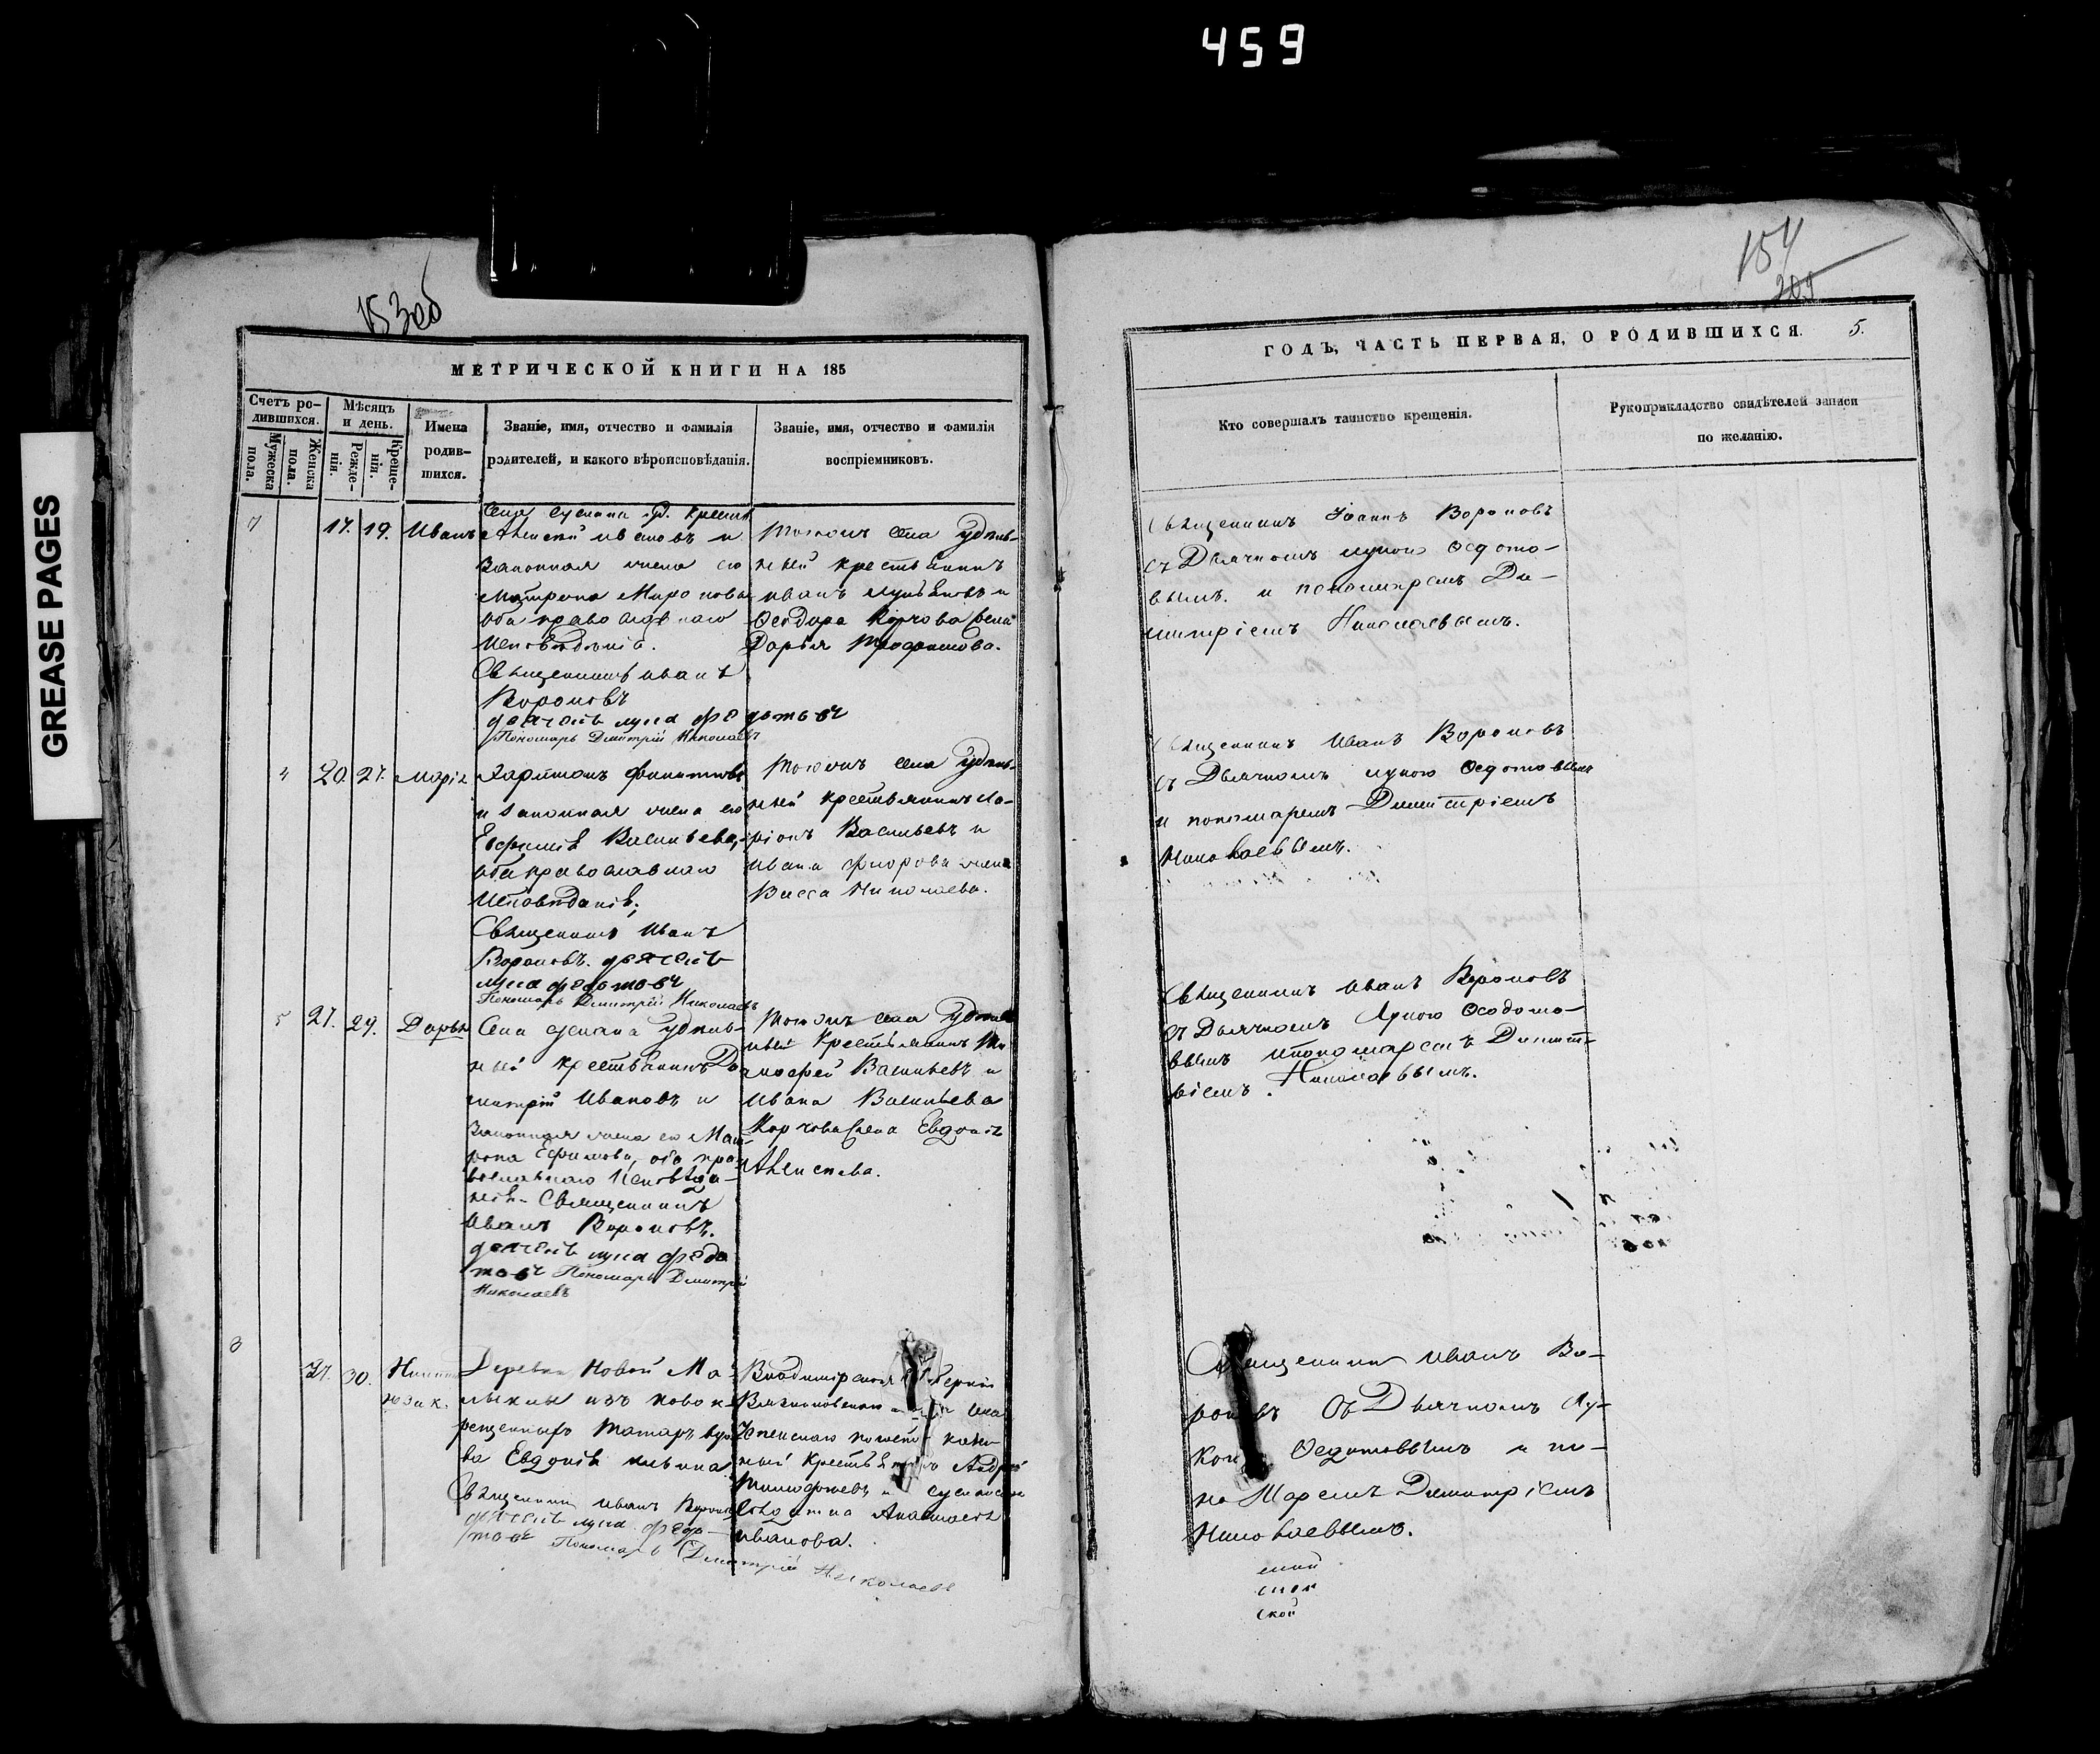 459
GREASE PAGES
153об
МЕТРИЧЕСКОЙ КНИГИ НА 185
Счетъ ро-
дившихся.
Мужеска
пола.
Женска
пола.
Мѣсяцъ
и день.
Рожде-
нія.
Креще-
нія.
Имена
родив-
шихся.
Званіе, имя, отчество и фамилія
родителей, и какого вѣроисповѣданія.
Званіе, имя, отчество и фамилія
воспріемниковъ.
7
17. 19. Иванъ
Села
Алексѣй Ивановъ и
законная жена его
Матрона Миронова
оба православнаго
исповѣданія.
Священникъ Иванъ
Вороновъ
дьячекъ Лука Федотовъ
Пономарь Дмитрій Николаевъ
Тогожъ села удѣль-
ный крестьянинъ
Иванъ и
Ѳеодора жена
Дарья Трофимова.
4 20. 27. Марія
Харитонъ
и законная жена его
Евфимія Васильева,
оба православнаго
исповѣданія;
Священникъ Иванъ
Вороновъ. дьячекъ
Лука Федотовъ
Пономарь Дмитрій Николаевъ
Тогожъ села удѣль-
ный крестьянинъ Ла-
ріонъ Васильевъ и
Ивана жена
Васса Николаева.
5 27. 29. Дарья
Села удѣль-
ный крестьянинъ Ди
митрій Ивановъ и
законная жена его Мат-
рона Ефимова, оба пра-
вославнаго исповѣда-
нія. Священникъ
Иванъ Вороновъ.
дьячекъ Лука Федо
товъ Пономарь Дмитрій
Николаевъ
Тогожъ села удѣль
ный крестьянинъ Ти
мофей Васильевъ и
Ивана Васильева
жена Евдокія
Алексѣева.
8
27. 30.
Деревни Новой Ма-
лыклы изъ новок-
рещенныхъ татаръ вдо
ва Евдокія Ильина
Священникъ Иванъ Вороновъ
дьячекъ Лука Федо-
товъ Пономарь Дмитрій Николаевъ
Владимірской губерніи
Вязниковскаго
крестьянинъ Андрей
и
Анастасія
Иванова.
154
209
ГОДЪ, ЧАСТЬ ПЕРВАЯ, О РОДИВШИХСЯ. 5.
Кто совершалъ таинство крещенія.
Рукоприкладство свидѣтелей записи
по желанію.
Священникъ Іоаннъ Вороновъ
съ Дьячкомъ Лукою Ѳедото-
вымъ. и пономаремъ Ди-
митріемъ Николаевымъ.
Священникъ Иванъ Вороновъ
съ Дьячкомъ Лукою Ѳедотовымъ
и пономаремъ Димитріемъ
Николаевымъ.
Священникъ Иванъ Вороновъ
съ Дьячкомъ Лукою Ѳеодото-
вымъ и пономаремъ Димит-
ріемъ. Николаевымъ.
Священникъ Иванъ Во-
роновъ съ Дьячкомъ Лу-
кою Ѳедотовымъ и по-
номаремъ Димитріемъ
Николаевымъ.
ской